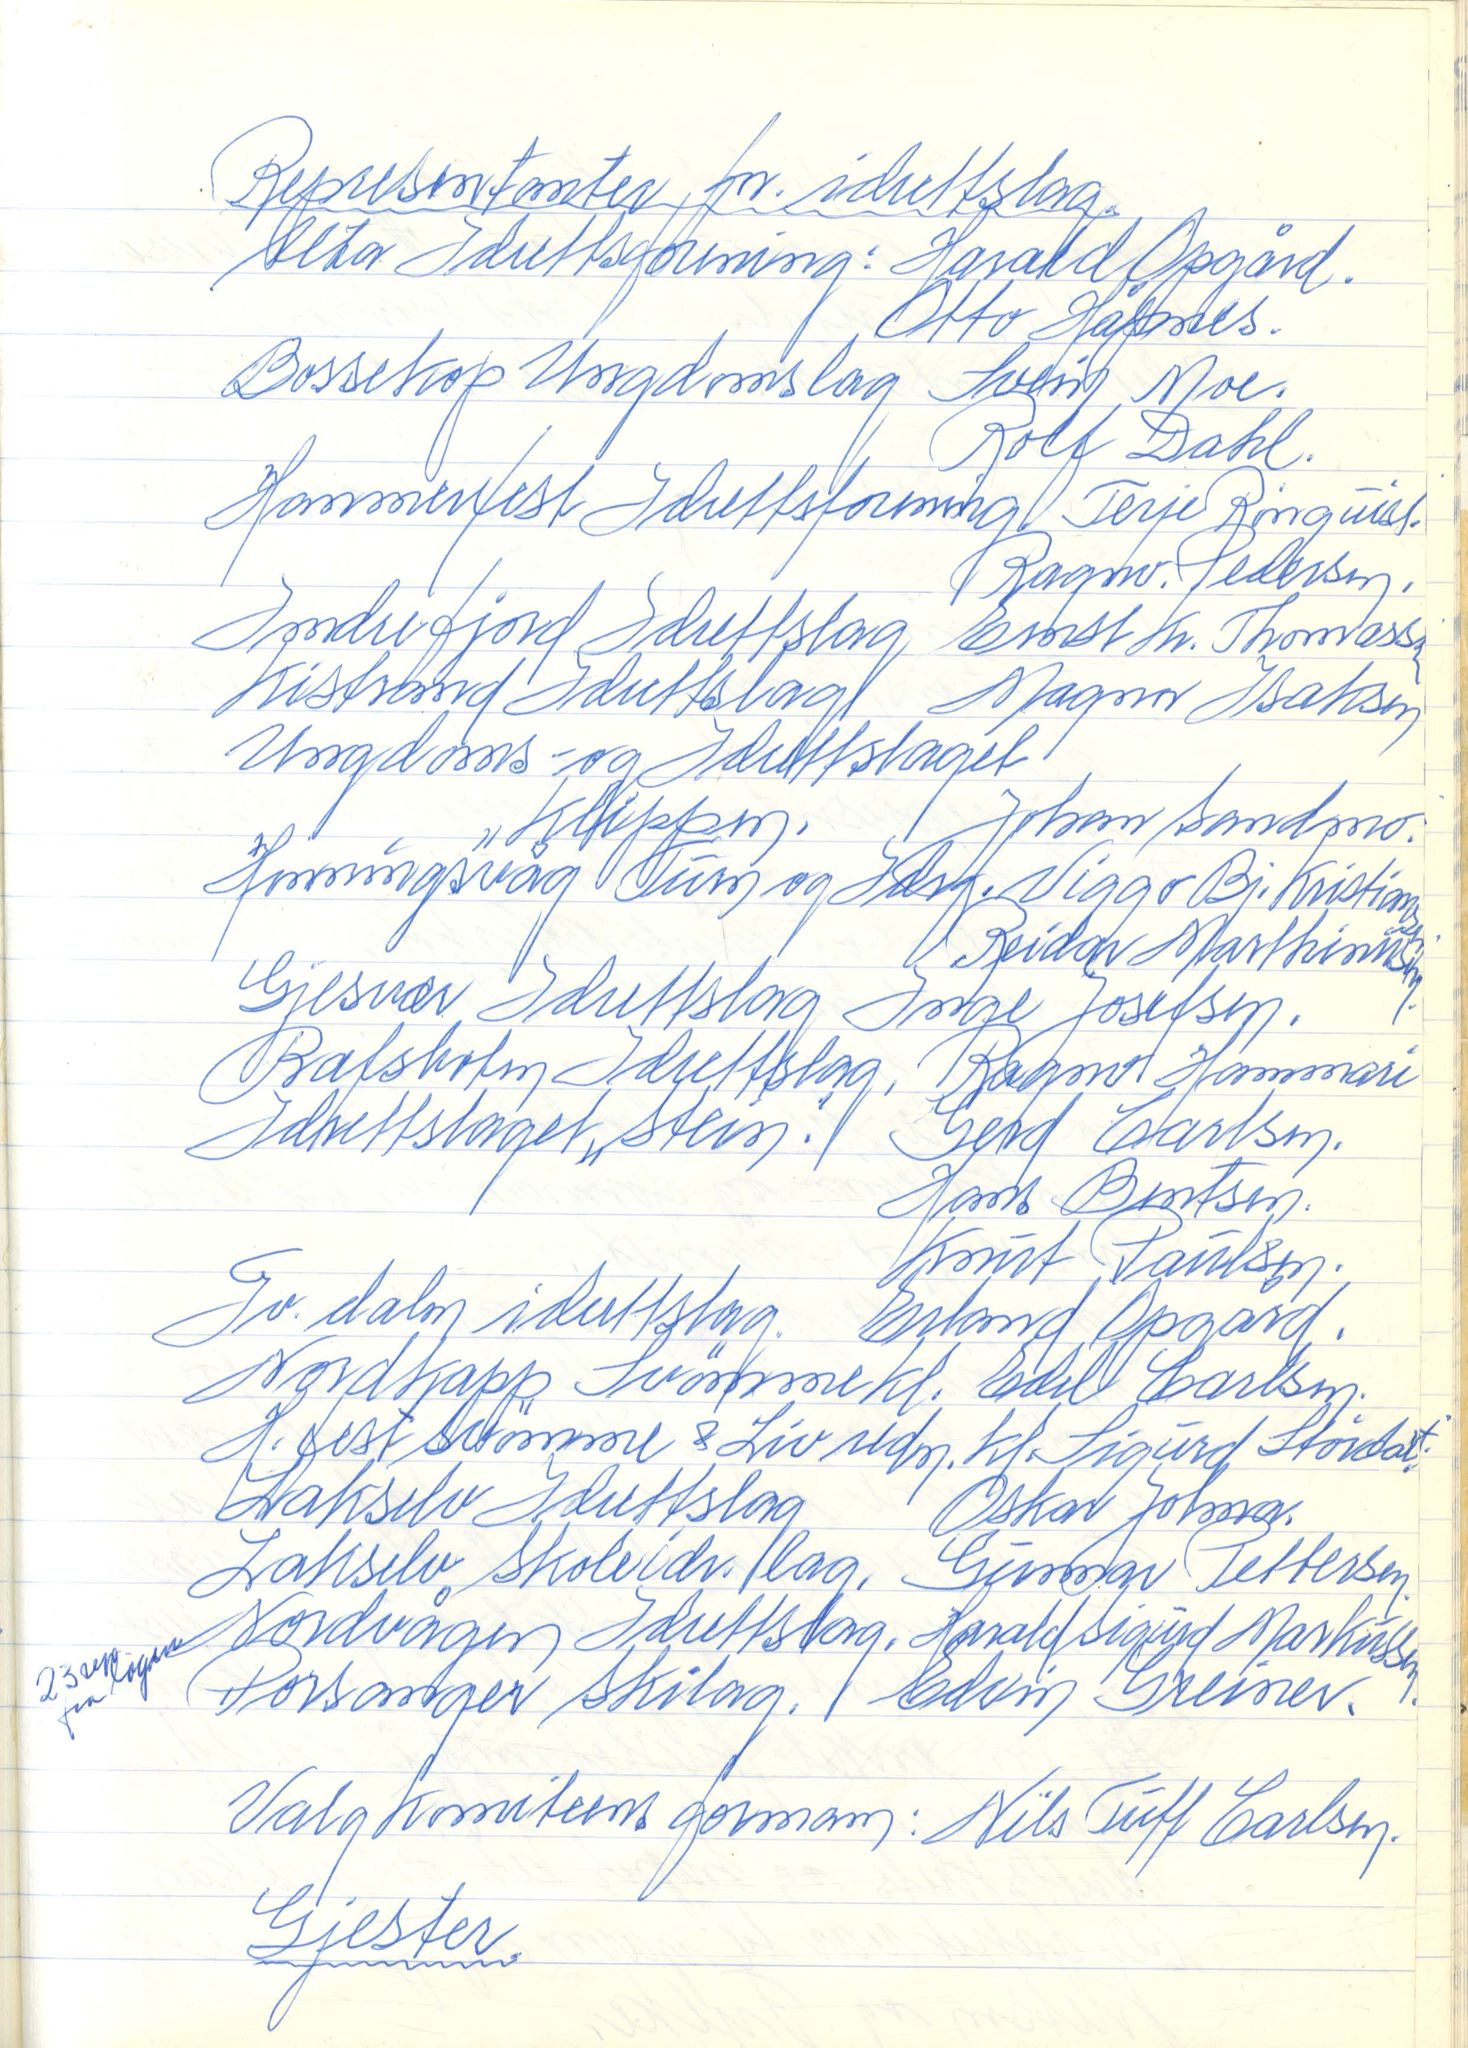 Representanter for idrettslag.
Alta Idrettsforening: Harald Opgård.
Otto Høfnes.
Bossekop Ungdomslag Svein Moe.
Rolf Dahl.
Hammerfest Idrettsforening Terje Ringquist.
Ragnv. Pedersen.
Indrefjord Idrettslag Ernst Kr. Thomassen
Kistrand Idrettslag Magnor Isaksen
Ungdoms- og Idrettslaget
„Klippen. Johan Sandmo.
Honningsvåg Turn og Idrg. Viggo Bj. Kristiansen.
Reidar Marthinussen.
Gjesvær Idrettslag Inge Josefsen.
Rafsbotn Idrettslag. Ragnv. Hammari
Idrettslaget „Stein." Gerd Carlsen.
Hans Berntsen.
Knut Paulsen.
Tv. dalen idrettslag. Erland Opgård.
Nordkapp Svömmekl. Edel Carlsen.
H.fest svömme & Livredn. kl. Sigurd Stordal.
Lakselv Idrettslag Oskar Johna.
Lakselv skoleidr. lag. Gunnar Pettersen.
Nordvågen Idrettslag. Harald Sigurd Markussen.
Porsanger Skilag. Edvin Greiner.
23 rep.
fra lagene
Valgkomiteens formann: Nils Tuff Carlsen.
Gjester.